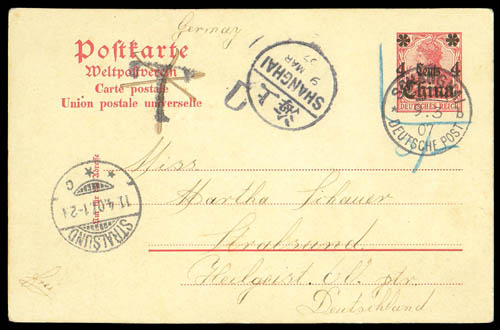 Germany
Postkarte
Weltpostverein
Carte postale
Union postale universelle
T
上海
SHANGHAI
9 MAR
07
4 Cents 4
China
DEUTSCHES REICH
SHANGHAI
9.3
07
b
DEUTSCHE POST
STRALSUND
11.4.07.1-2N
* C *
Miss
Martha Schauer
Stralsund
Heilgeist. Str.
Deutschland